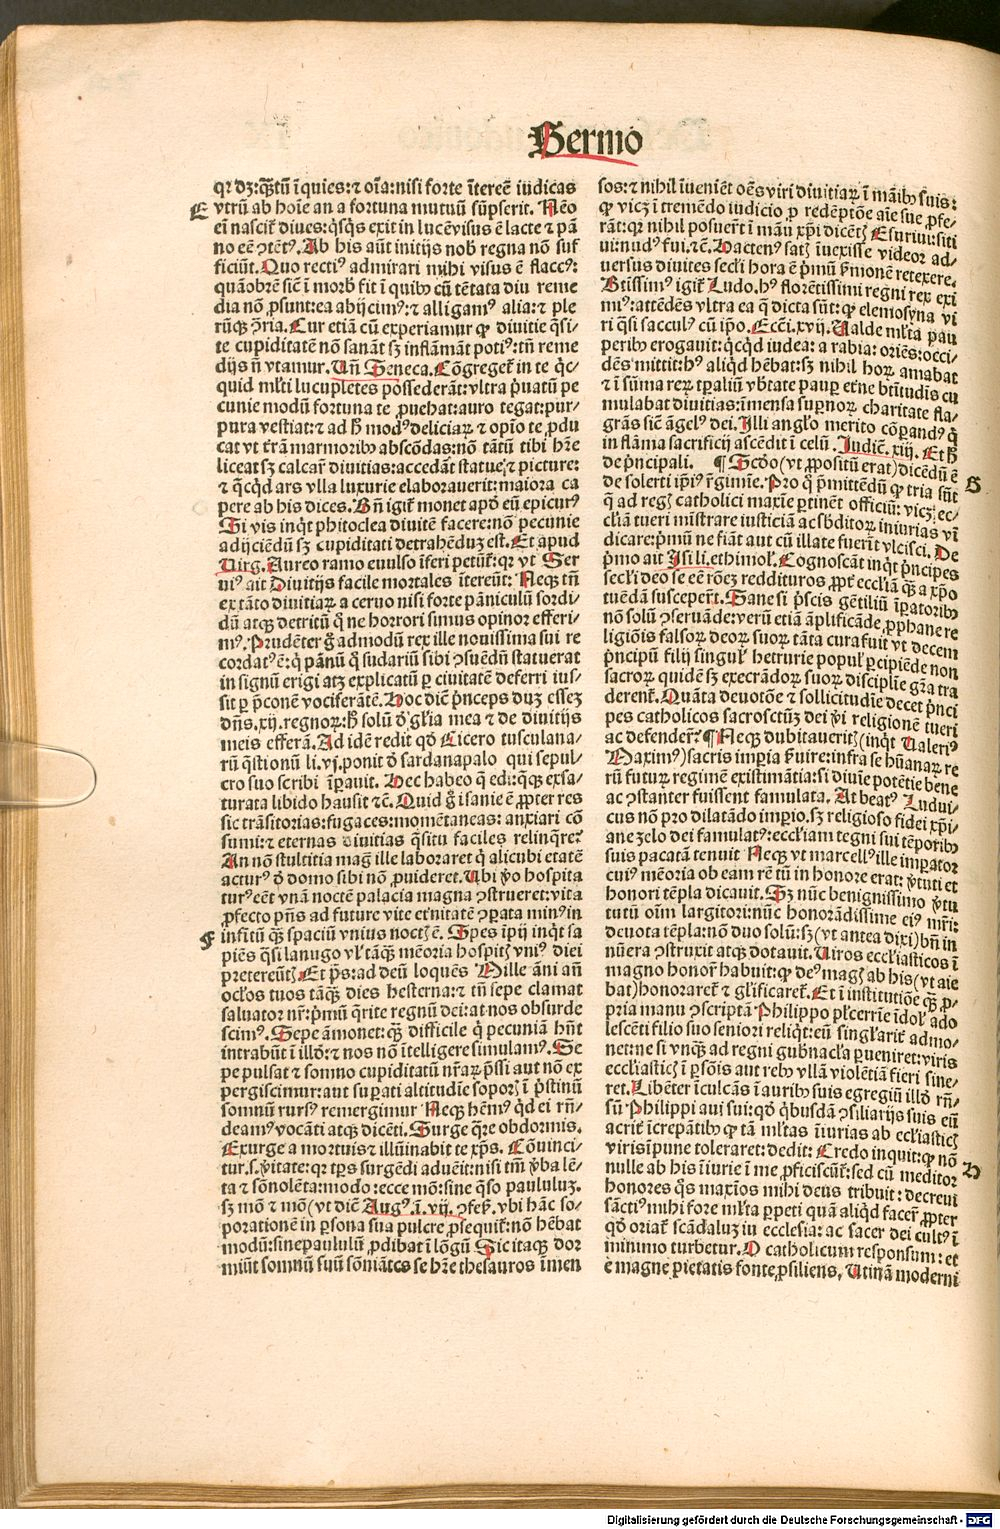 Sermo
qr dʒ: q̄tū īquies: ⁊ oīa: nisi forte ītereē iudicas
E vtrū ab hoīe an a fortuna mutuū sūpserit. Nēo
eī nascit̄ diues: q̇sq̇s exit in lucē visus ē lacte ⁊ pā
no eē ꝯtēt⁹. Ab his aūt initijs nob regna nō suf
ficiūt. Quo recti⁹ admirari mihi visus ē flacc⁹:
quāobrē sic̄ ī morb̄ fit ī quib⁹ cū tētata diu reme
dia nō ꝓsunt: ea abijcim⁹: ⁊ alligam⁹ alia: ⁊ ple
rūq̨ ꝯ̄ria. Cur etiā cū experiamur ꝙ diuitie q̄si-
te cupiditatē nō sanāt sʒ inflāmāt poti⁹: tn̄ reme
dijs n̄ vtamur. Vn̄ Seneca. Cōgreget̄ in te q̇c-
quid ml̄ti lucupletes possederāt: vltra p̄uatū pe
cunie modū fortuna te ꝓuehat: auro tegat: pur-
pura vestiat: ⁊ ad h̄ mod⁹ deliciaꝝ ⁊ opīo te ꝑdu
cat vt t̄rā marmorib⁹ abscōdas: nō tātū tibi hr̄e
liceat sʒ calcar̄ diuitias: accedāt statue; ⁊ picture:
⁊ q̄cq̇d ars vlla luxurie elaborauerit: maiora ca
pere ab his dices. Bn̄ igit̄ monet apd̄ eū epicur⁹
Si vis inq̇t phitoclea diuitē facere: nō pecunie
adijciēdū sʒ cupiditati detrahēduʒ est. Et apud
Virg. Aureo ramo euulso īferi petūt̄: qr vt Ser
ui⁹ ait Diuitijs facile mortales itereūt: Neqʒ tn̄
ex tāto diuitiaꝝ aceruo nisi forte pāniculū sordi-
dū atqʒ detritū q̇ ne horrori simus opinor efferi-
m⁹. Prudēter g̊ admodū rex ille nouissima sui re
cordat⁹ ē: q̇ pānū q̇ sudariū sibi ꝯsuēdū statuerat
in signū erigi atʒ explicatū ꝑ ciuitatē deferri ius-
sit ꝑ p̄conē vociferātē. Hoc dic̄ p̄nceps duʒ esseʒ
dn̄s .xij. regnoꝝ: h̄ solū d̓ gl̄ia mea ⁊ de diuitijs
meis efferā. Ad idē redit qd̓ Cicero tusculana-
rū q̄stionū li. vj. ponit d̓ sardanapalo qui sepul-
cro suo scribi īꝑauit. Hec habeo q̄ edi: q̄qʒ exsa-
turata libido hausit ⁊c̄. Quid g̊ isanie ē ꝓpter res
sic trāsitorias: fugaces: momētaneas: anxiari cō
sumi: ⁊ eternas diuitias q̄situ faciles relinq̄re?
An nō stultitia mag̊ ille laboraret q̇ alicubi etatē
actur⁹ d̓ domo sibi nō ꝓuideret. Vbi v̄o hospita
tur⁹ eēt vnā noctē palacia magna ꝯstrueret: vita
ꝓfecto pn̄s ad future vite etn̄itatē ꝯꝑata min⁹ in
F infītū q̄ʒ spaciū vnius noctʒ ē. Spes ip̄ij inq̇t sa
piēs q̄si lanugo vl̓ tāqʒ mēoria hospitʒ vni⁹ diei
p̄tereūtʒ. Et ps̄: ad deū loquēs Mille āni an̄
ocl̄os tuos tāqʒ dies hesterna: ⁊ tn̄ sepe clamat
saluator nr̄: p̄mū q̄rite regnū dei: at nos obsurde
scim⁹. Sepe āmonet: q̄ʒ difficile q̇ pecuniā hn̄t
intrabūt ī illd̓: ⁊ nos nō ītelligere simulam⁹. Se
pe pulsat ⁊ somno cupiditatū nr̄aꝝ p̄ssi aut nō ex
pergiscimur: aut suꝑati altitudīe soporʒ ī p̄stinū
somnū rurs⁹ remergimur Neqʒ hēm⁹ q̇d ei rn̄-
deam⁹ vocāti atqʒ dicēti. Surge q̇re obdormis.
Exurge a mortuis ⁊ illūinabit te xp̄s. Cōuinci-
tur .s. v̄itate: qr tp̄s surgēdi aduēit: nisi tm̄ v̄ba lē-
ta ⁊ sōnolēta: modo: ecce mō: sine q̄so paululuʒ.
sʒ mō ⁊ mō (vt dic̄ Aug⁹. ī. vij. ꝯfeſſ. vbi hāc so-
porationē in ꝑsona sua pulcre ꝓsequit̄: nō hēbat
modū: sine paululū ꝓdibat ī lōgū Sic itaqʒ dor
miūt somnū suū sōniātes se hr̄e thesauros īmen
sos: ⁊ nihil īueniēt oēs viri diuitiaꝝ ī māib⁹ suis:
ꝙ vicʒ ī tremēdo iudicio ꝑ redēptōe aīe sue ꝓfe-
rāt: qr nihil posuer̄t ī manū xp̄i dicētʒ Esuriui: siti
ui: nud⁹ fui. ⁊c̄. Hacten⁹ satʒ īuexisse videor ad-
uersus diuites secl̄i hora ē p̄mū s̓monē retexere.
Btīssim⁹ igit̄ Ludo. h⁹ florētissimi regni rex exi
mi⁹: attēdēs vltra ea q̄ dicta sūt: ꝙ elemosyna vi
ri q̄si saccul⁹ cū ip̄o. Ecc̄i. xvij. Valde ml̄ta pau
perib⁹ erogauit: q̇cq̇d iudea: arabia: oriēs: occi-
dēs mittit: h⁹ aliq̇d hēbat: sʒ nihil hoꝝ amabat
⁊ ī sūma reꝝ tꝑaliū vb̄tate pauꝑ et̄ne btītudīs cu
mulabat diuitias: īmensa suꝑnoꝝ charitate fla-
grās sic̄ āgel⁹ dei. Illi angl̄o merito cōꝑand⁹ q̇
in flāma sacrificij ascēdit ī celū. Iudic̄. xiij. Et h̄
de p̄ncipali. ¶ Scd̓o (vt ꝓpositū erat) dicēdū ē G
de solerti ip̄i⁹ r̄gimīe. Pro q̊ p̄mittēdū ꝙ tria sūt
q̄ ad regʒ catholici maxīe ꝑtinēt officiū: vicʒ ec-
cl̄iā tueri mīstrare iusticiā ac sb̓ditoꝝ iniurias vī
dicare: p̄mū ne fiāt aut cū illate fuer̄t vlcisci. De
p̄mo ait Isi. li. ethimol̓. Cognoscāt inq̇t p̄ncipes
secl̄i deo se eē rōeʒ reddituros ꝓpt̄ eccl̄iā q̄ʒ a xp̄o
tuēdā susceper̄t. Sane si p̄scis gētiliū īꝑatorib⁹
nō solū ꝯseruāde: verū etiā āplificāde ꝓphane re
ligiōis falsoꝝ deoꝝ suoꝝ tāta cura fuit vt decem
p̄ncipū filij singul̓ hetrurie popul̓ ꝑcipiēde non
sacroꝝ quidē sʒ execrādoꝝ suoꝝ disciplīe gr̄a tra
derent̄. Quāta deuotōe ⁊ sollicitudīe decet p̄nci
pes catholicos sacrosctūʒ dei v̄i religionē tueri
ac defender̄? ¶ Neqʒ dubitauer̄tʒ (inq̇t Valeri⁹
Maxim⁹) sacris imꝑia s̓uire: infra se hūanaꝝ re
rū futuꝝ regimē existimātia: si diuīe potētie bene
ac ꝯstanter fuissent famulata. At beat⁹ Ludui-
cus nō pro dilatādo imꝑio. sʒ religioso fidei xp̄i-
ane zelo dei famulat⁹: eccl̄iam regni sui tēporib⁹
suis pacatā tenuit Neqʒ vt marcell⁹ ille imꝑator
cui⁹ mēoria ob eam rē tū in honore erat: v̄tuti et
honori tēpla dicauit. Sʒ nūc benignissimo v̄tu
tutū oīm largitori: nūc honorādissime ei⁹ mr̄i:
deuota tēpla: nō duo solū: sʒ (vt antea dixi) bn̄ in
nūera ꝯstruxit atqʒ dotauit. Viros eccl̄iasticos ī
magno honor̄ habuit: ꝙ de⁹ magʒ ab his (vt aie
bat) honoraret̄ ⁊ gl̄ificaret̄. Et ī institutiōe q̄ʒ ꝓ-
pria manu ꝯscriptā Philippo pl̄cerrīe īdol̓ ado
lescēti filio suo seniori reliq̇t: eū singl̄arit̄ admo-
net: ne si vnq̄ʒ ad regni gub̓nacl̄a ꝑueniret: viris
eccl̄iasticʒ ī ꝑsōis aut reb⁹ vllā violētiā fieri sine-
ret. Libēter īculcās ī aurib⁹ suis egregiū illd̓ rn̄-
sū Philippi aui sui: qd̓ q̇busdā ꝯsiliarijs suis eū
acrit̄ īcrepātib⁹ ꝙ tā ml̄tas īiurias ab eccl̄iasticʒ
viris īpune toleraret: dedit: Credo inquit: ꝙ nō
nulle ab his īiurie ī me ꝓficiscūt̄: sed cū meditor H
honores q̄s maxīos mihi deus tribuit: decreui
sāct̄i⁹ mihi fore ml̄ta ꝑpeti quā aliq̇d facer̄ ꝓpter
qd̓ oriat̄ scādaluʒ iu ecclesia: ac sacer dei cult⁹ ī
minimo turbetur. O catholicum responsum: et
ē magne pietatis fonte ꝓsiliens. Vtinā moderni
Digitalisierung gefördert durch die Deutsche Forschungsgemeinschaft - DFG